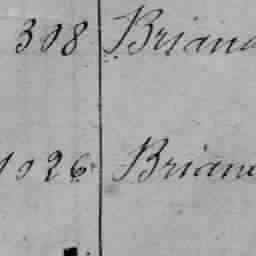 308 Briand
1026 Briand